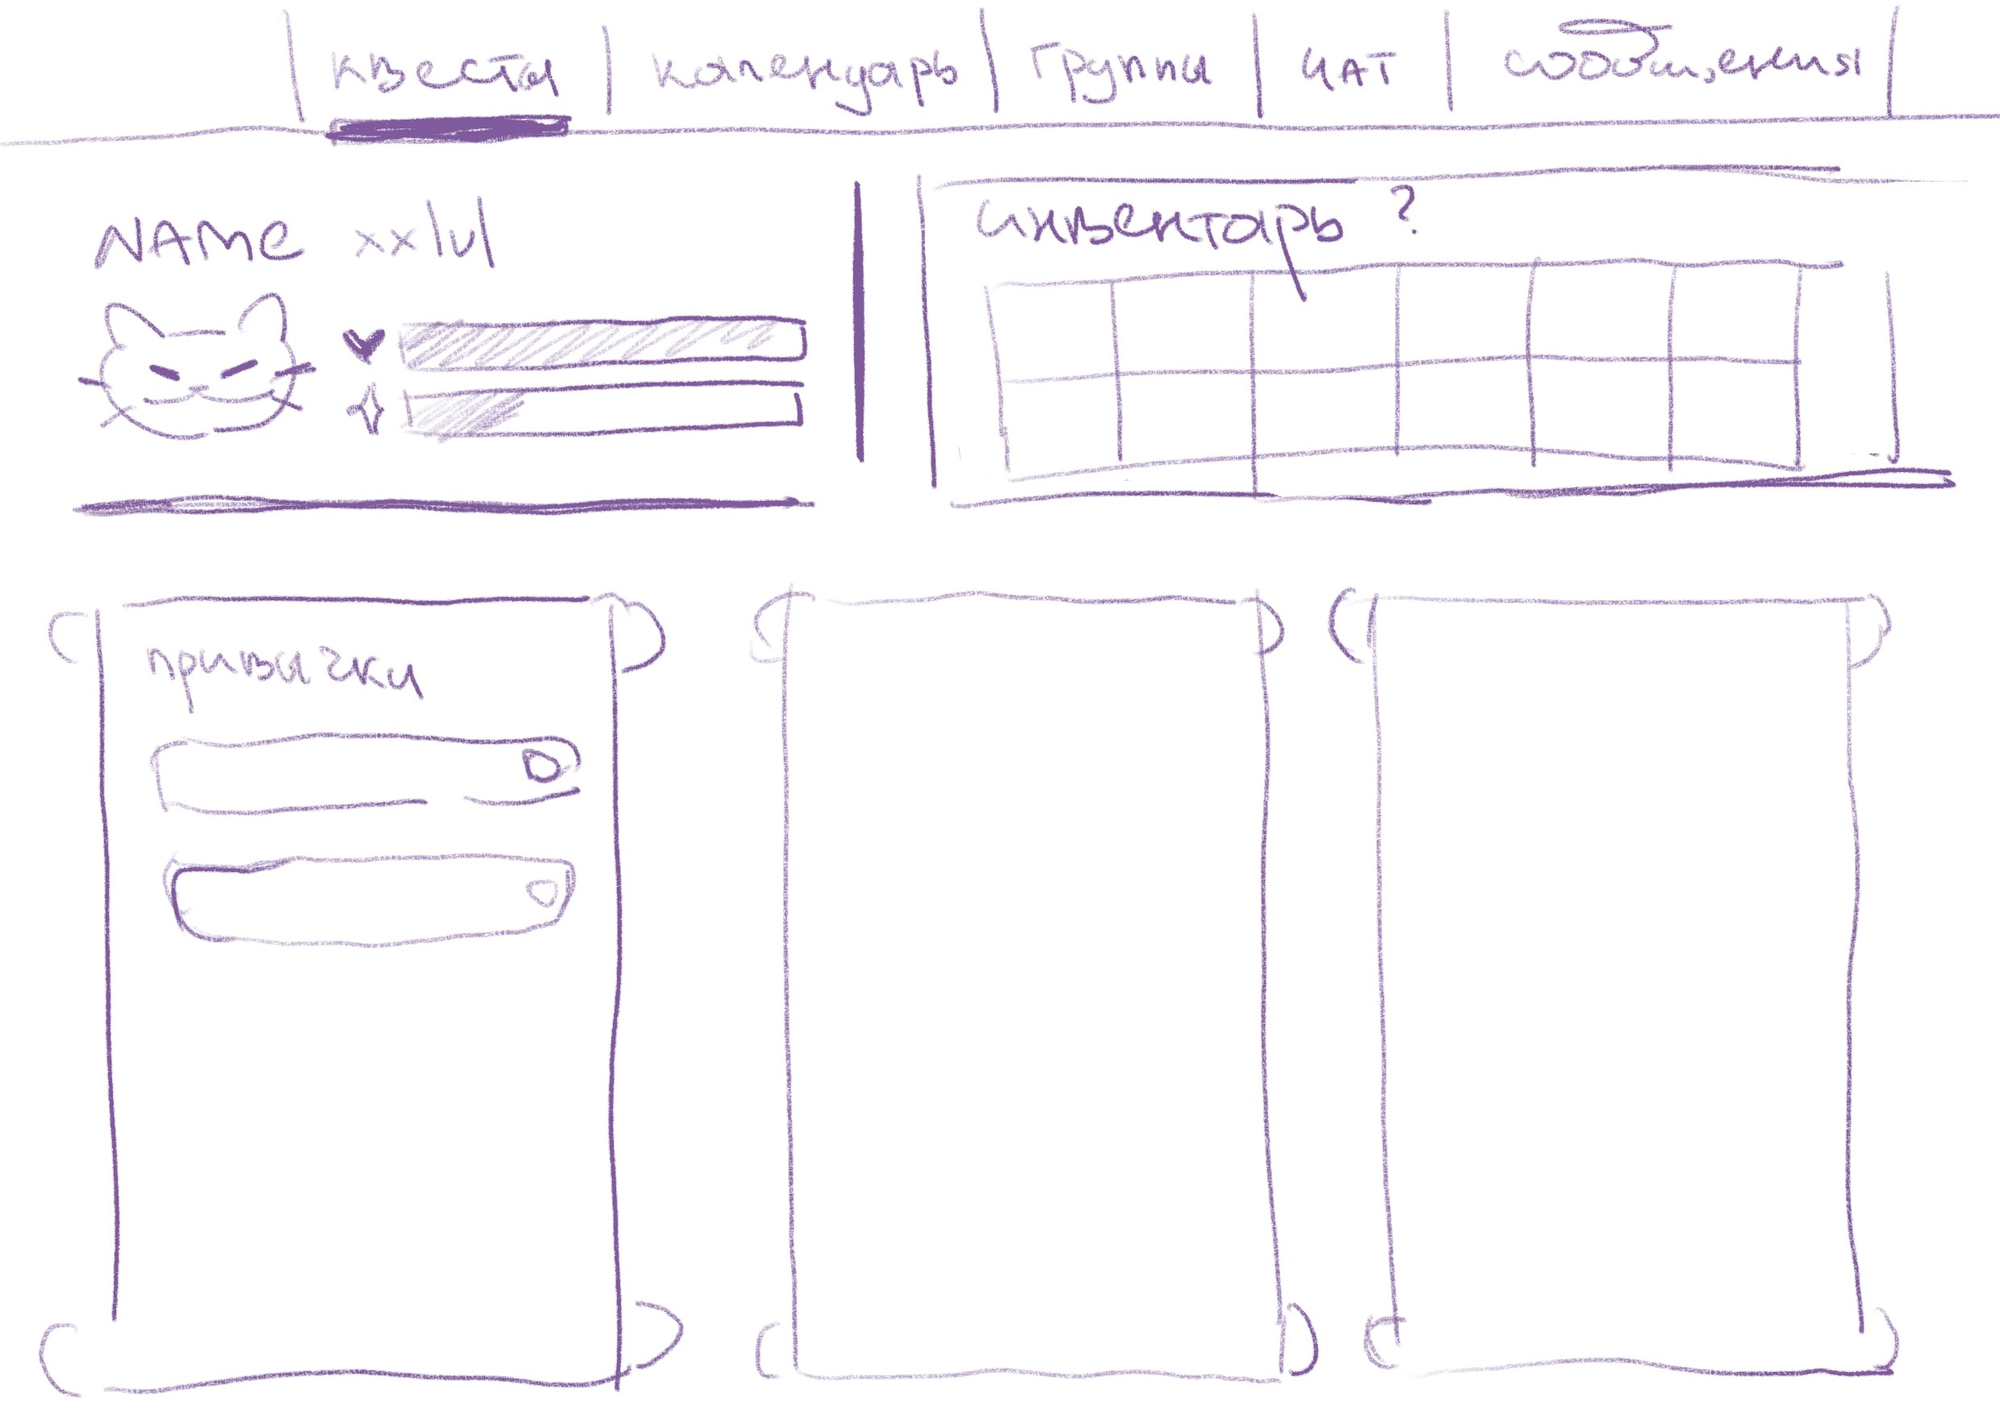 квесты | календарь | группы | чат | сообщения
NAME xx lvl
инвентарь ?
привычки